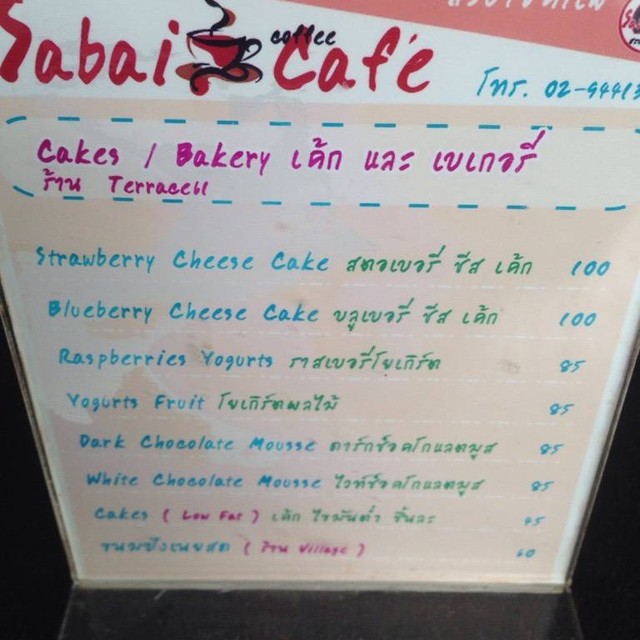 Sabai coffee Café
โทร. 02-9441
Cakes / Bakery เค้ก และ เบเกอรี่
ร้าน Terrace61
Strawberry Cheese Cake สตอเบอรี่ ชีส เค้ก 100
Blueberry Cheese Cake บลูเบอรี่ ชีส เค้ก 100
Raspberries Yogurts ราสเบอรี่โยเกิร์ต 85
Yogurts Fruit โยเกิร์ตผลไม้ 85
Dark Chocolate Mousse ดาร์กช็อคโกแลตมูส 85
White Chocolate Mousse ไวท์ช็อคโกแลตมูส 85
Cakes ( Low Fat ) เค้ก ไขมันต่ำ ชิ้นละ 45
ขนมปังเนยสด ( ร้าน Village ) 60